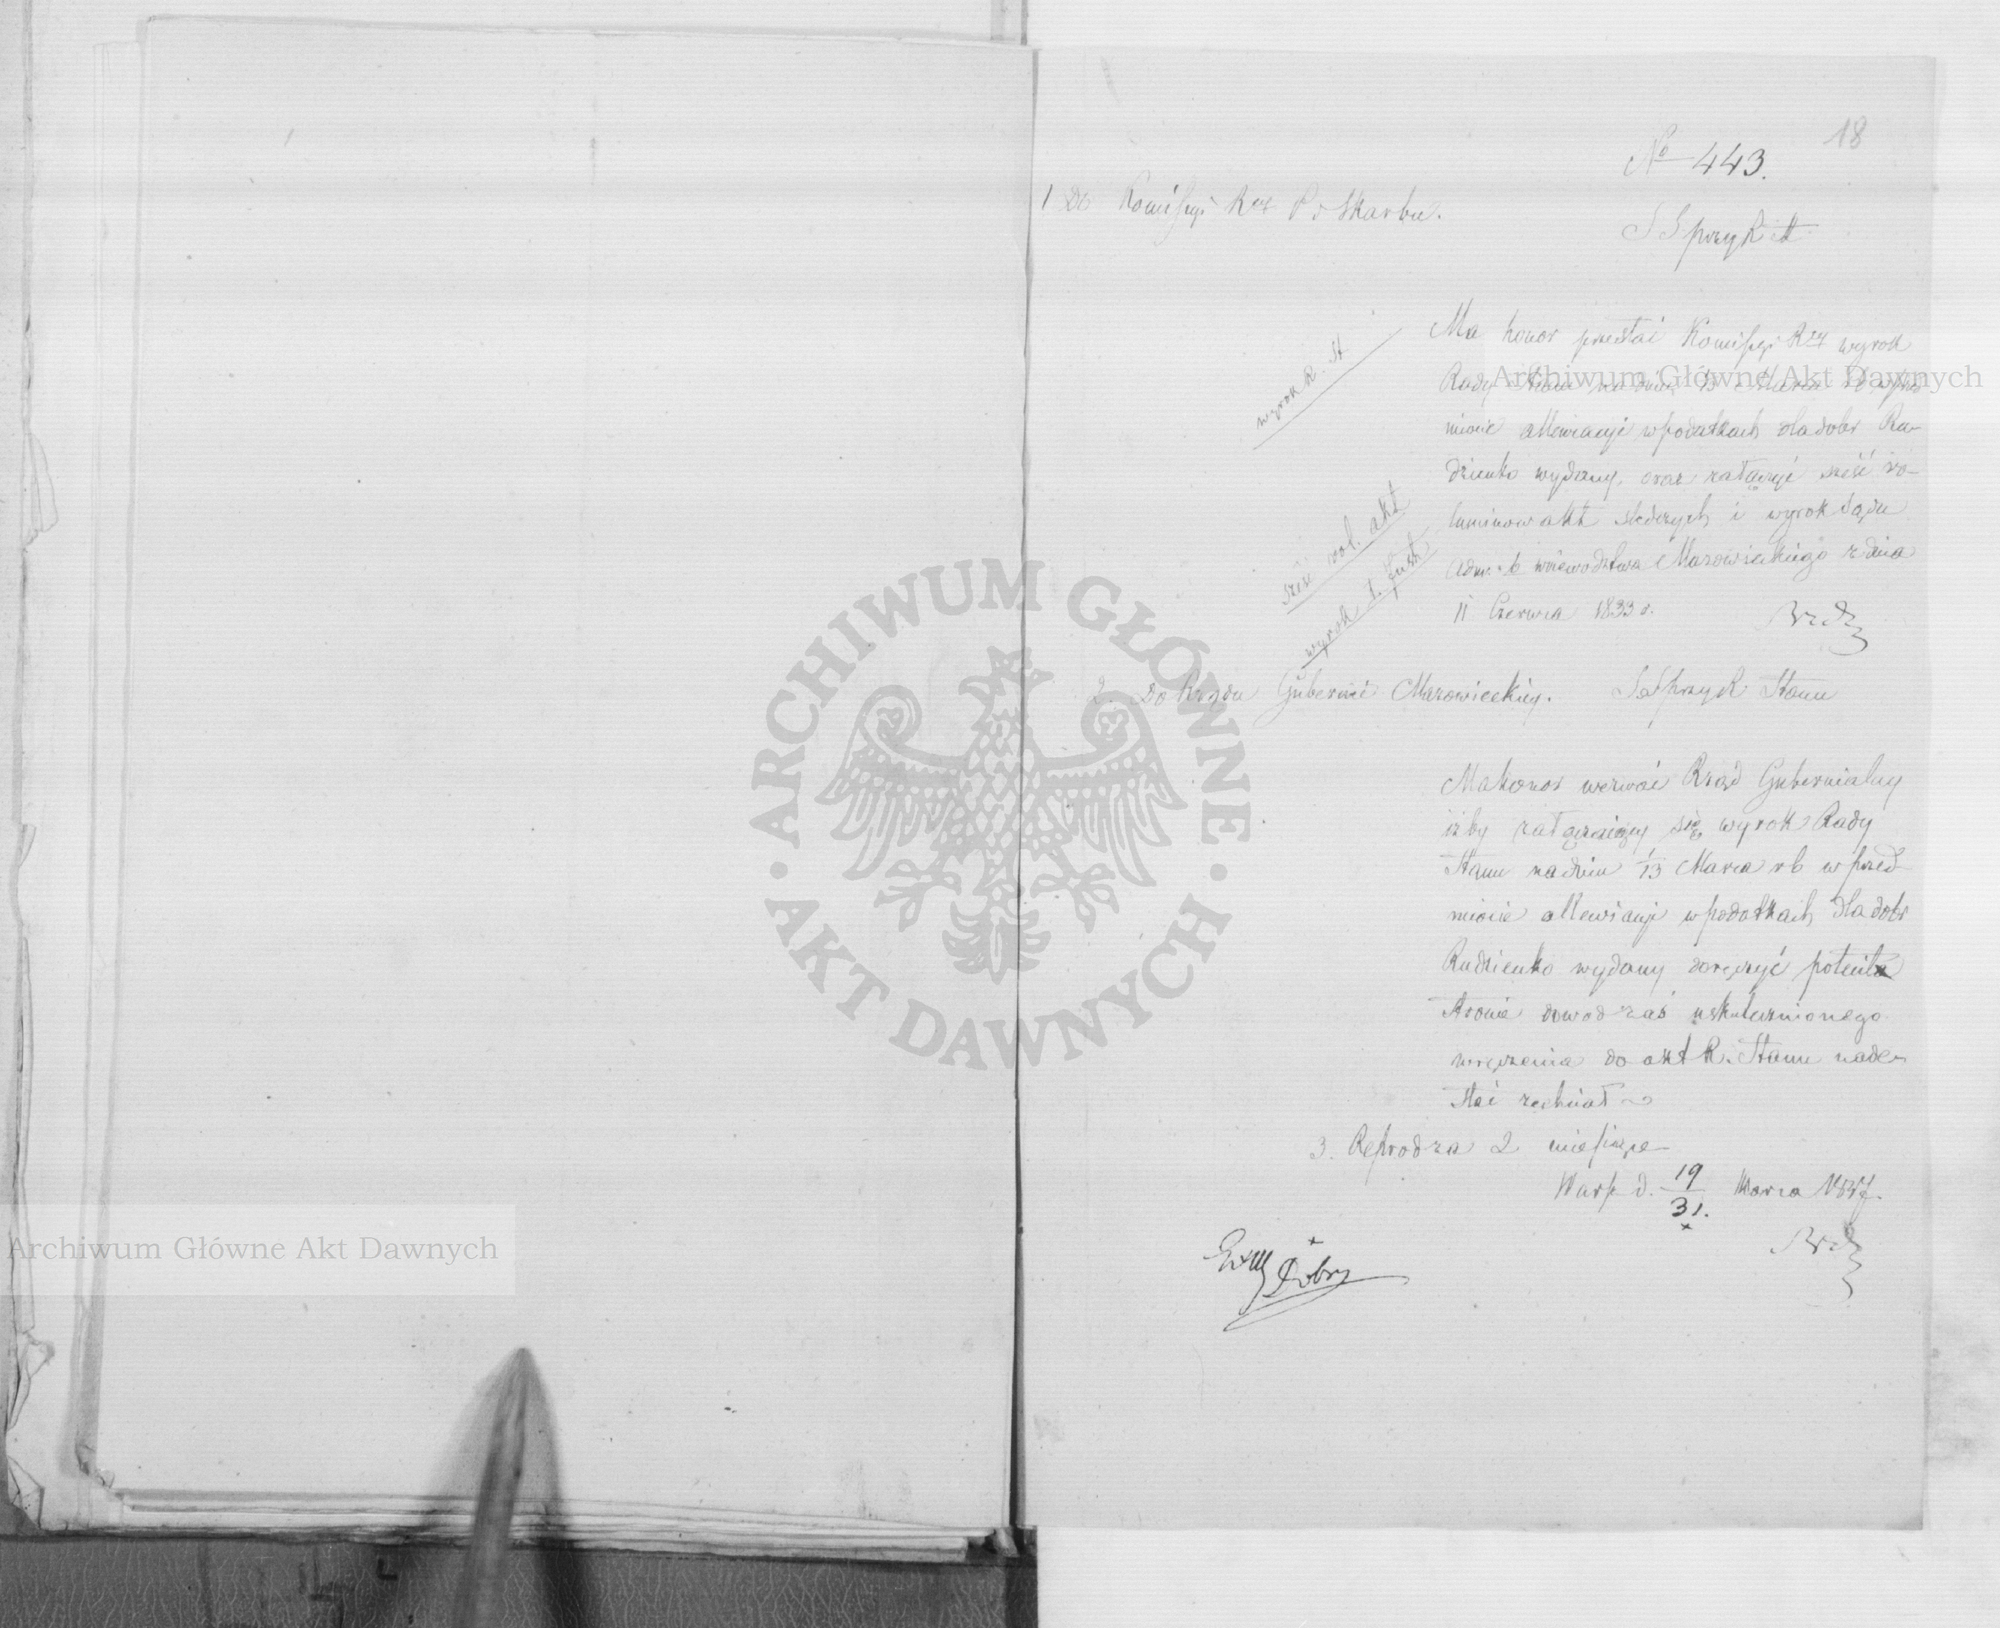 18
No 443.
1 Do Komissyi Rzą P i Skarbu.
S S przy R St
wyrok R. St
Ma honor przesłać Komissyi Rzą wyrok
Rady Stanu na dniu 1/13 Marca rb w przed
miocie allewiacyi w podatkach dla dobr Ru-
dzienko wydany, oraz załączyć sześć vo-
luminow akt śledczych i wyrok Sądu
sześć vol. akt
Adm. b wojewodztwa Mazowieckiego z dnia
wyrok
11 Czerwca 1833 r.
2. Do Rządu Gubernii Mazowieckiey.
S S przy R Stanu
Ma honor wezwać Rząd Gubernialny
iżby załączaiący się wyrok Rady
Stanu na dniu 1/13 Marca rb w przed
miocie allewiacyi w podatkach dla dobr
Rudzienko wydany doręczyć
stronie dowod zaś uskutecznionego
wręczenia do akt R. Stanu nade-
słać zechciał
3. Reprod za 2 miesiące
Warsz d. 19/31. Marca
Archiwum Główne Akt Dawnych
Archiwum Główne Akt Dawnych
ARCHIWUM GŁÓWNE · AKT DAWNYCH ·